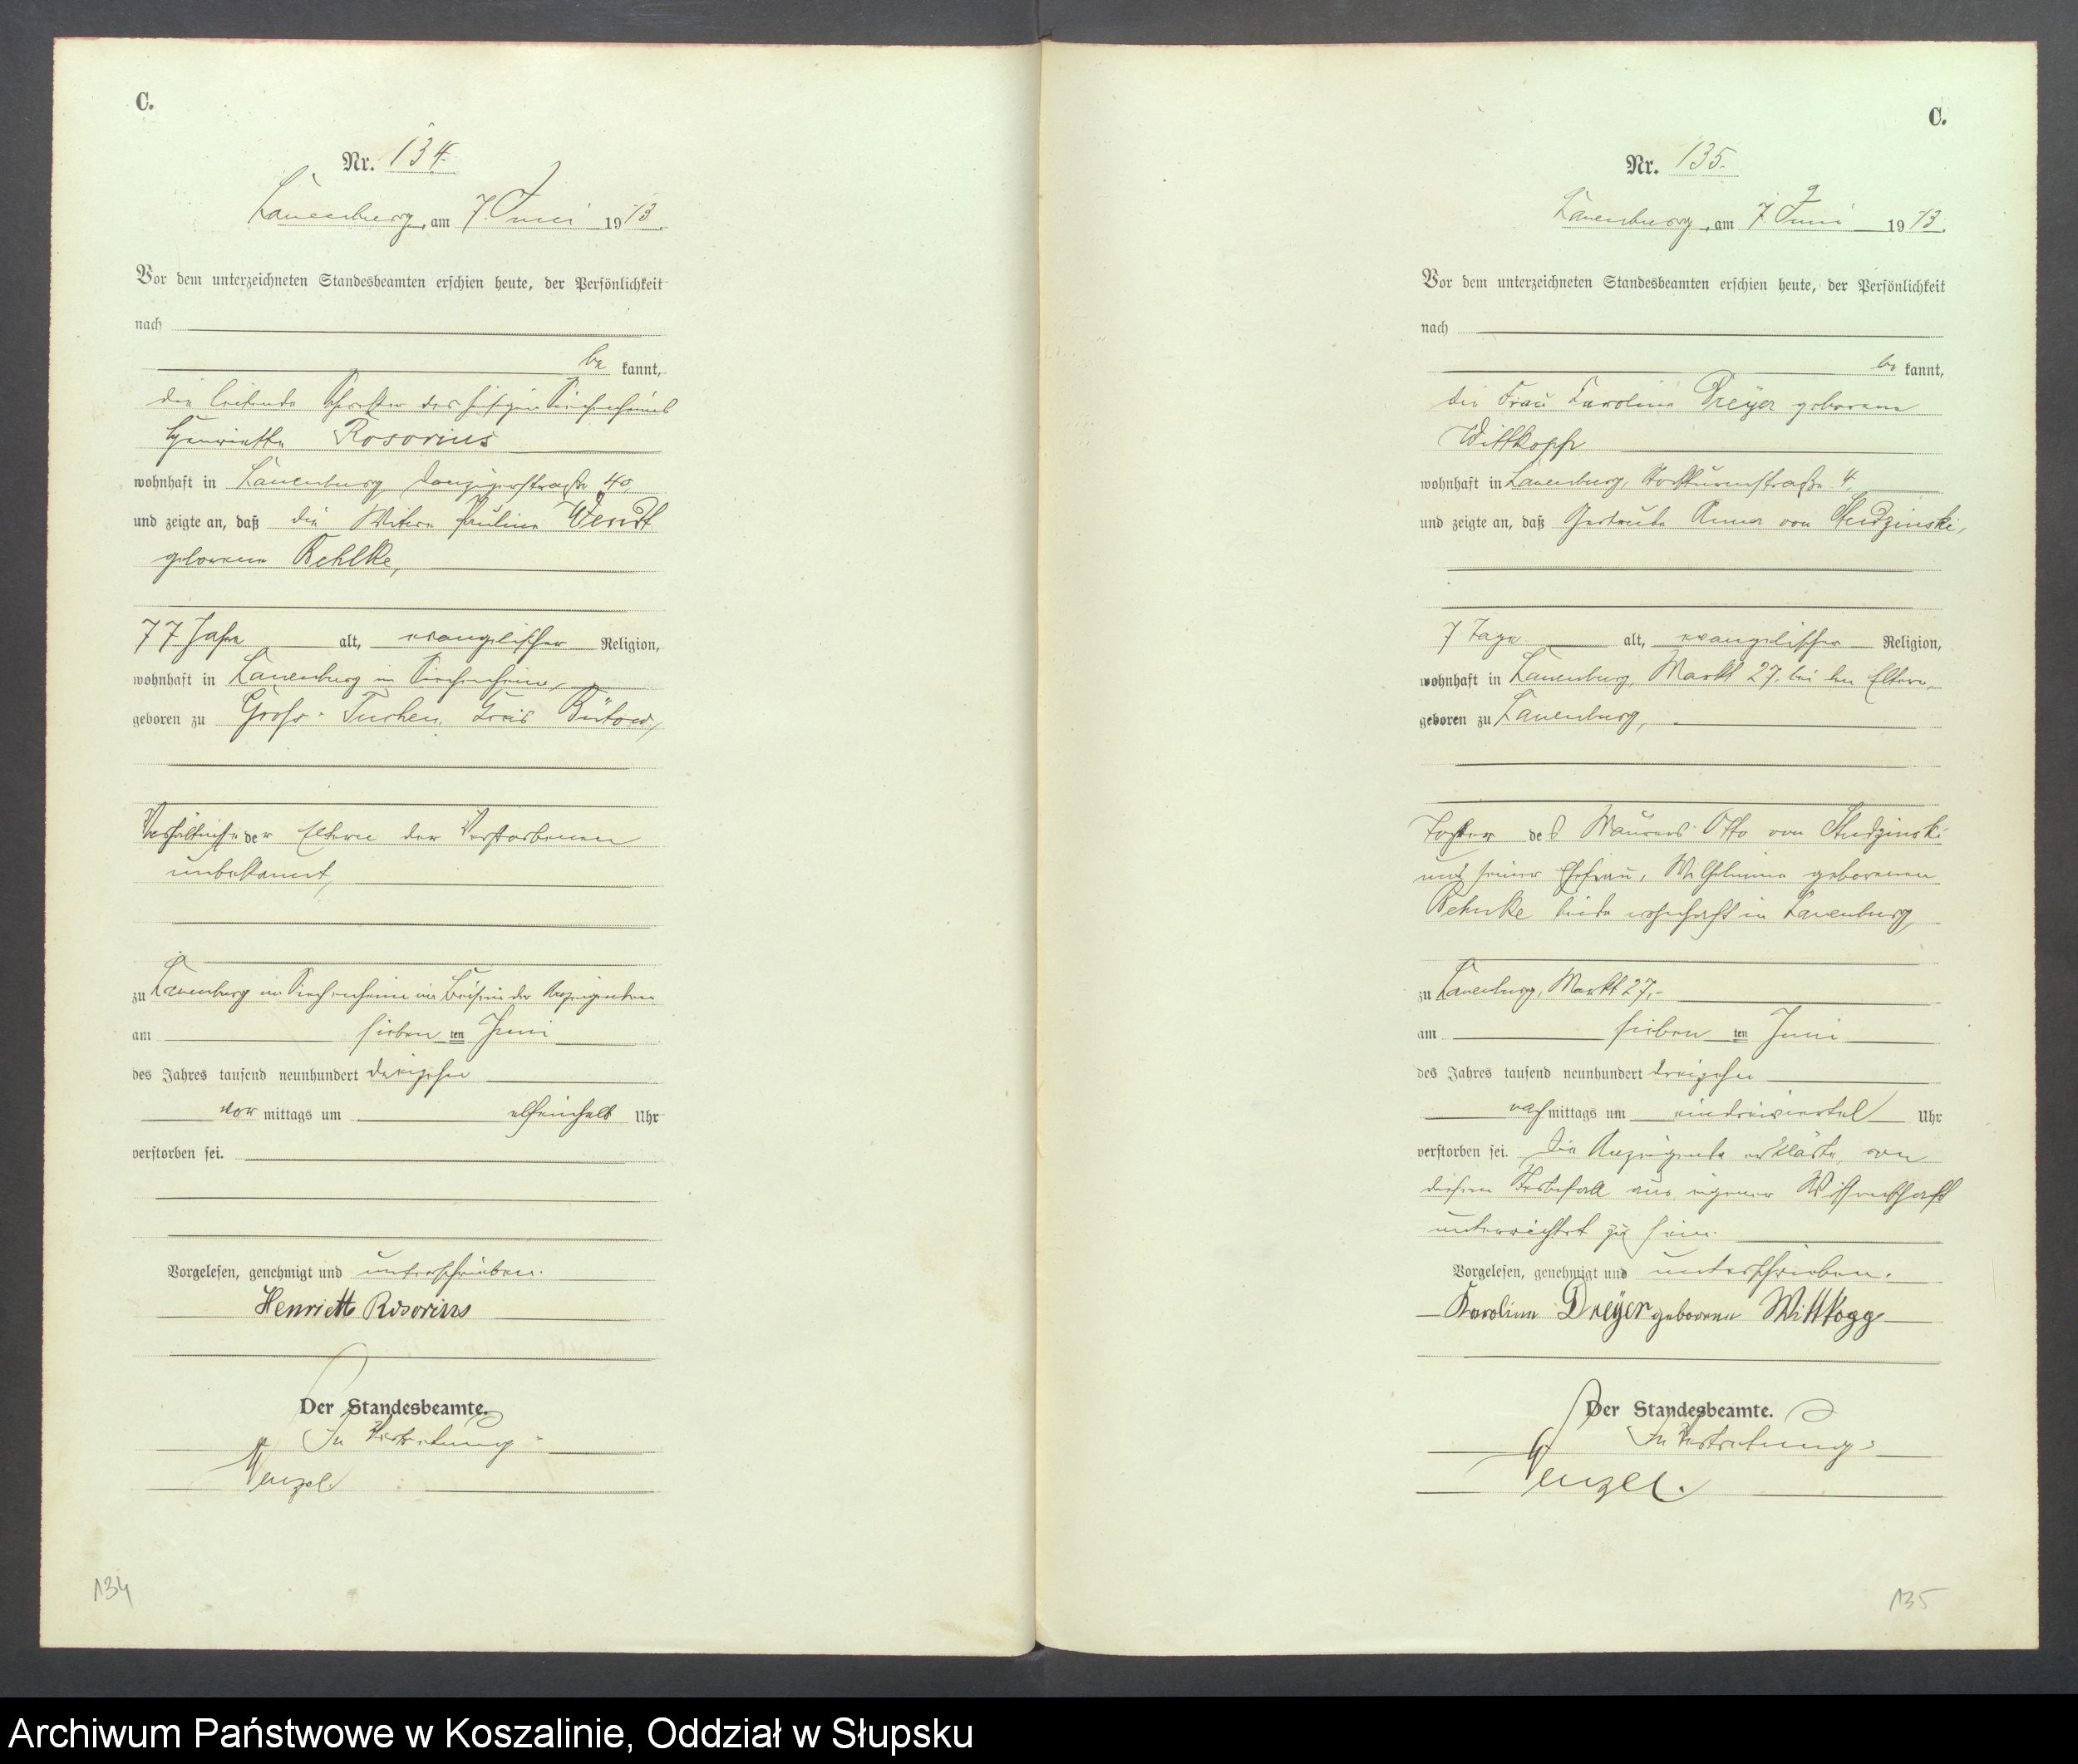 C.
Nr. 134.
Lauenburg, am 7. Juni 1913.
Vor dem unterzeichneten Standesbeamten erschien heute, der Persönlichkeit
nach
be kannt,
die leitende Schwester des hiesigen Siechenheims
Henriette Rosorius
wohnhaft in Lauenburg Danzigerstraße 40,
und zeigte an, daß die Witwe Pauline Wendt
geborene Behlke,
77 Jahre alt, evangelischer Religion,
wohnhaft in Lauenburg im Siechenheim,
geboren zu Groß-Tuchen, Kreis Bütow,
Verhältnisse der Eltern der Verstorbenen
unbekannt,
zu Lauenburg im Siechenheim im Beisein der Anzeigenden
am sieben ten Juni
des Jahres tausend neunhundert dreizehn
vor mittags um elfeinhalb Uhr
verstorben sei.
Vorgelesen, genehmigt und unterschrieben.
Henriette Rosorius
Der Standesbeamte.
In Vertretung
Wenzel
134
C.
Nr. 135.
Lauenburg, am 7. Juni 1913.
Vor dem unterzeichneten Standesbeamten erschien heute, der Persönlichkeit
nach
be kannt,
die Frau Karoline Dreyer geborene
Wittkopp
wohnhaft in Lauenburg, 4,
und zeigte an, daß Gertrude Anna von Studzinski,
7 Tage alt, evangelischer Religion,
wohnhaft in Lauenburg, Markt 27. bei den Eltern,
geboren zu Lauenburg,
Tochter des Maurers Otto von Studzinski
und seiner Ehefrau, Wilhelmine geborenen
Behnke beide wohnhaft in Lauenburg,
zu Lauenburg, Markt 27,-
am sieben ten Juni
des Jahres tausend neunhundert dreizehn
nach mittags um eindreiviertel Uhr
verstorben sei. Die Anzeigende erklärte, von
diesem Sterbefall aus eigener Wissenschaft
unterrichtet zu sein.
Vorgelesen, genehmigt und unterschrieben.
Karoline Dreyer geborene Wittkopp
Der Standesbeamte.
In Vertretung:
Wenzel.
135
Archiwum Państwowe w Koszalinie, Oddział w Słupsku